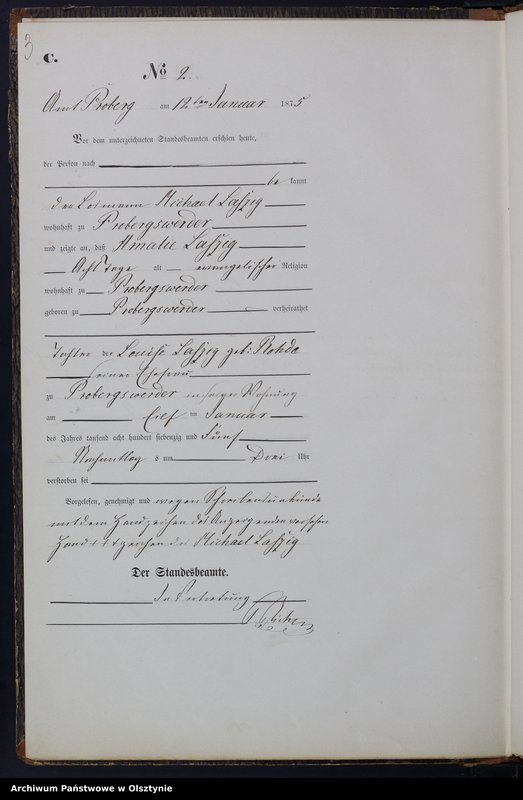 3
C.
No 2.
Amt Proberg am 12ten Januar 1875
Vor dem unterzeichneten Standesbeamten erschien heute,
der Person nach
be kannt
der Losmann Michael Laszig
wohnhaft zu Probergswerder
und zeigte an, daß Amalie Laszig
Acht Tage alt evangelischer Religion
wohnhaft zu Probergswerder
geboren zu Probergswerder verheirathet
Tochter der Louise Laszig geb: Rohde
seiner Ehefrau
zu Probergswerder in seiner Wohnung
am Elf ten Januar
des Jahres tausend acht hundert siebenzig und Fünf
Nachmittag s um Drei Uhr
verstorben sei
Vorgelesen, genehmigt und wegen Schreibensunkunde
mit dem Handzeichen des Anzeigenden versehen
Hand + + + zeichen des Michael Laszig
Der Standesbeamte.
In Vertretung
Archiwum Państwowe w Olsztynie